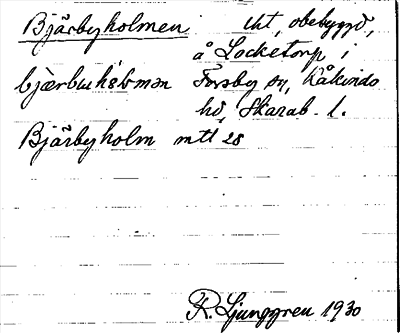 Bjärbyholmen
lht, obebyggd,
å Locketorp i
bjærbuhålmən Forsby sn, Kåkinds
hd, Skarab. l.
Bjärbyholm mtl 28
R. Ljunggren 1930